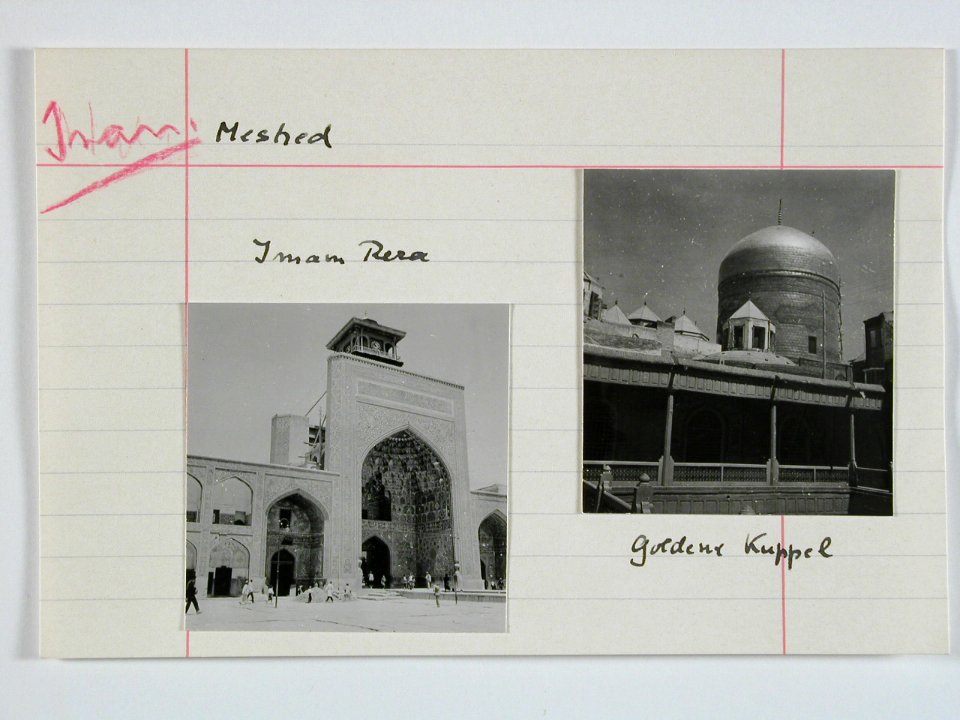 Iran: Meshed
Imam Reza
Goldene Kuppel